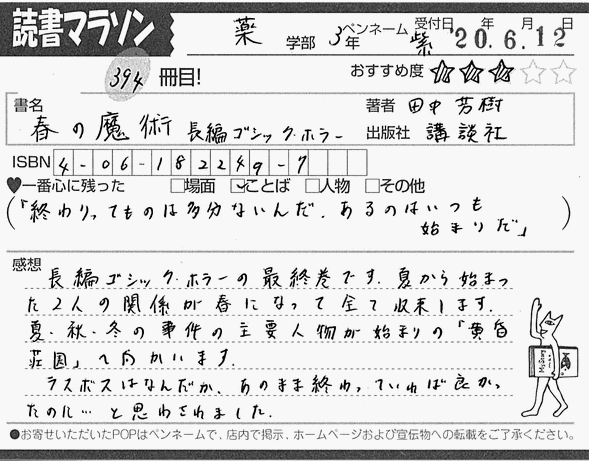 読書マラソン
薬 学部 3年 ペンネーム 紫 受付日 20年 6月 12日
394 冊目! おすすめ度 ★★★☆☆
書名 著者 田中芳樹
春の魔術 長編ゴシック・ホラー 出版社 講談社
ISBN 4-06-182249-7
♥一番心に残った □場面 ☑ことば □人物 □その他
(「終わりってものは多分ないんだ.あるのはいつも
始まりだ」)
感想
長編ゴシック・ホラーの最終巻です.夏から始まっ
た2人の関係が春になって全て収束します.
夏・秋・冬の事件の主要人物が始まりの「黄昏
荘園」へ向かいます.
ラスボスはなんだか、あのまま終わっていれば良かっ
たのに… と思わされました.
●お寄せいただいたPOPはペンネームで、店内で掲示、ホームページおよび宣伝物への転載をご了承ください。